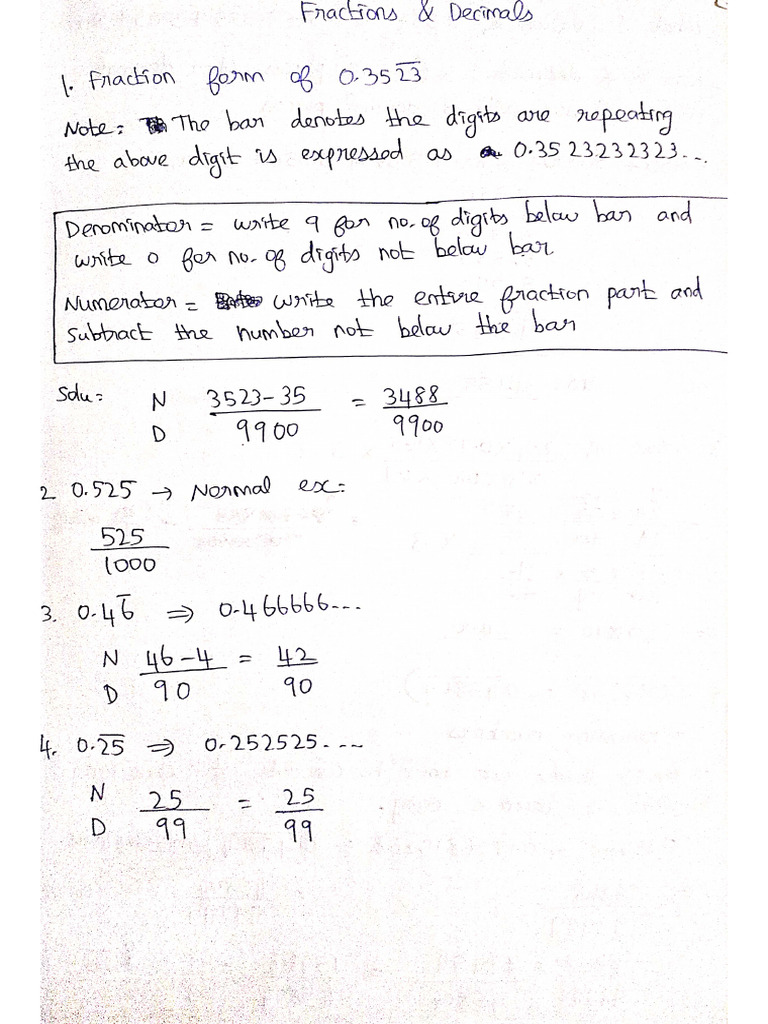 Fractions & Decimals
1. Fraction form of 0.352̅3̅
Note: The bar denotes the digits are repeating
the above digit is expressed as 0.3523232323...
Denominator = write 9 for no. of digits below bar and
write 0 for no. of digits not below bar.
Numerator = write the entire fraction part and
subtract the number not below the bar
Solu: N 3523-35 = 3488
D 9900 9900
2. 0.525 → Normal ex:
525
1000
3. 0.46̅ ⇒ 0.466666...
N 46-4 = 42
D 90 90
4. 0.2̅5̅ ⇒ 0.252525....
N 25 = 25
D 99 99